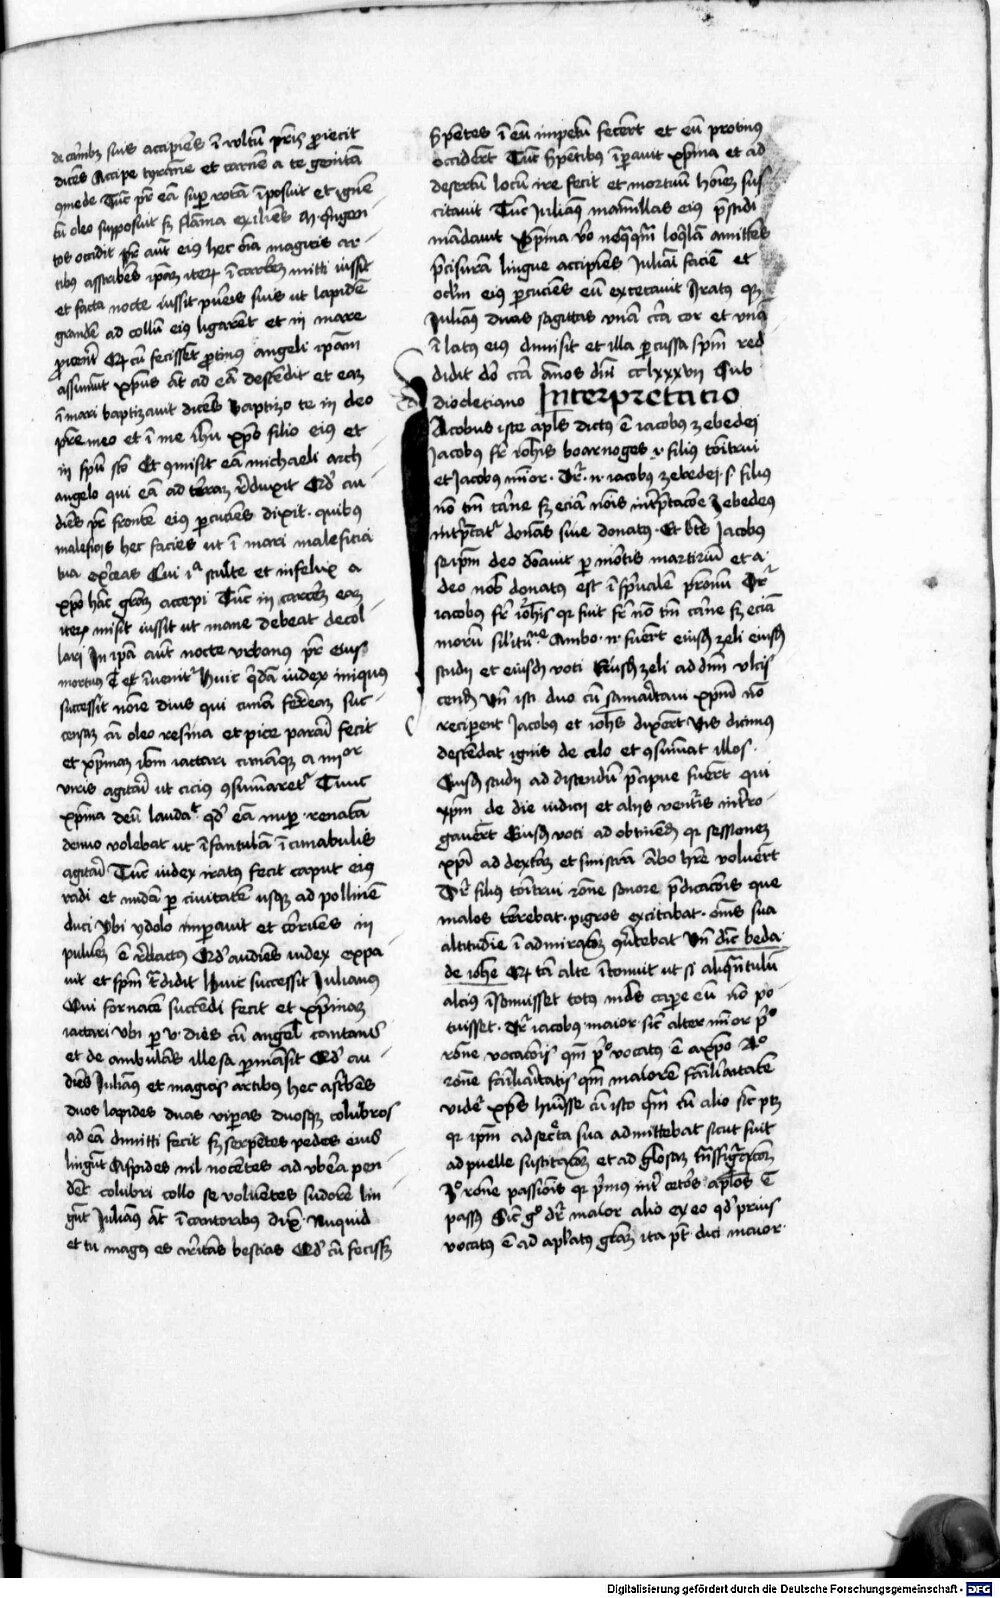 de carnibus suis accipiens ī vultū pr̄is proiecit
dicēs Accipe tyranne et carnē a te genitā
ꝯmede Tūc pr̄ eā suꝑ rotā īposuit et ignē
cū oleo supposuit sꝫ flāma exiliēs Mᵒ qingen
tos occidit pr̄ aūt eius hec oīa magicis ar
tibus asscribēs ip̄am iteꝝ ī carcerē mitti iussit
et facta nocte iussit pueris suis ut lapidē
grandē ad collū eius ligarēt et in mare
proicerēt Qꝫ cū fecissēt ꝓtinus angeli ip̄am
assumūt xp̄us āt ad eā descēdit et eam
ī mari baptizavit dicēs Baptizo te in deo
pr̄e meo et ī me ih̄u xp̄o filio eius et
in spū sc̄o Et ꝯmisit eā michaeli arch
angelo qui eā ad terrā reduxit Qd' au
diēs pr̄ frontē eius ꝑcuciēs dixit · quibus
maleficijs hec facies ut ī mari maleficia
tua exerceas Cui ip̄a stulte et infelix a
xp̄o hāc grām accepi Tūc in carcerē eam
iteꝝ misit iussit ut mane debeat decol
lari In ip̄a aūt nocte urbanus pr̄ eius
mortuus ē et īvenitur Huic quidā iudex iniquus
successit noīe dius qui cunā ferreā suc
censam cū oleo resina et pice parari fecit
et xp̄inam ibm iactari cunāqꝫ a iiijor
viris agitari ut cicius ꝯsumaretur Tunc
xp̄ina deū laudat qd' eā nuper renatā
denuo volebat ut īfantulā ī cunabulis
agitari Tūc iudex iratus fecit caput eius
radi et nudā ꝑ civitatem usqꝫ ad pollinē
duci Ubi ydolo imperavit et corruēs in
pulverē ē redactus Qd' audiens iudex expa
uit et spm̄ tradidit Huic successit Julianus
Qui fornacē succēdi fecit et xp̄inam
iactari Ubi ꝑ v dies cū angelis cantans
et de ambulās illesa ꝑmāsit Qd' au
diēs Julianus et magicis artibus hec ascribēs
duos lapides duas viperas duosqꝫ colubros
ad eā dimitti fecit sꝫ serpētes pedes eius
lingūt Aspides nil nocētes ad ubera pen
dēt colubri collo se voluētes sudorē lin
gūt Julianus āt īcantoribus dixit Nuquid
et tu magus es irritans bestias Qd' cū fecissꝫ
serpētes ī eū impetū fecert et eū protinus
occidert Tūc serpētibus īperavit xp̄ina et ad
desertū locū ire fecit et mortuū hoīem sus
citavit Tūc Julianus mamillas eius p̄scidi
mādavit Xp̄ina vero neqquam loqlā amittēs
p̄cisurā lingue accipiēs Juliani faciē et
oclm̄ eius ꝑcuciēs eū excecavit Iratus qꝫ
Julianus duas sagittas unā circa cor et unā
ī latus eius dimisit et illa ꝑcussa spm̄ red
didit dō circa annos dn̄i cclxxxvii Sub
diocletiano Interpretacio
Jacobus iste apl̄s dictus ē iacobus zebedei
Jacobus fr̄ ioh̄is boarnoges v filius tonitrui
et Jacobus maior · Dr̄ n̄ iacobus zebedei s' filius
nō tm̄ carne sꝫ eciā nois interpretacōe Zebedeus
interpretatur donās siue donatus · Et bt̄s Jacobus
seip̄m deo donavit per mortis martiriū et a
deo nobis donatus est ī spūalē patronū Dr̄
iacobus fr̄ ioh̄is qꝫ fuit fr̄ nō tm̄ carne sꝫ eciā
morū similitudine Ambo n̄ fuert eiusdē zeli eiusdē
studii et eiusdē voti Eiusdē zeli ad dn̄m ulcis
cendū Un̄ isti duo cū samaritani xp̄m nō
reciperent Jacobus et ioh̄s dixert Vis dicimus
descēdat ignis de celo et ꝯsumat illos ·
Eiusdē studii ad discendū p̄cipue fuert qui
xp̄m de die iudicii et aliis venturis intero
gavert Eiusdē voti ad obtinend qꝫ sessionem
xp̄i ad dexterā et sinistrā ābo hr̄e voluert
Dr̄ filius tonitrui rōne sonore p̄dicacōis que
malos terrebat · pigros excitabat · oīnes sua
altitudie ī admiracōem ꝯvertebat Un̄ dic beda
de ioh̄e Qꝫ tā alte ītonuit ut si aliqntulū
alcius īsonuisset totus mūds capere eū nō po
tuisset · Dr̄ iacobus maior sic alter minor pᵒ
rōne vocacōis quia pᵒ vocatus ē a xp̄o 2ᵒ
rōne familiaritatis quia maiorē familiaritatē
videtur xp̄s huisse cū isto quam cū alio sic ptꝫ
qꝫ ip̄m ad secreta sua admittebat sicut fuit
ad puelle suscitacōem et ad gl̄osam tn̄sfiguracōem
3ᵒ rōne passionis qꝫ primus inter ceteros apl̄os ē
passus Sic gᵒ dr̄ maior alio ex eo qd' prius
vocatus ē ad apl̄atus grām ita pt̄ dici maior
Digitalisierung gefördert durch die Deutsche Forschungsgemeinschaft - DFG